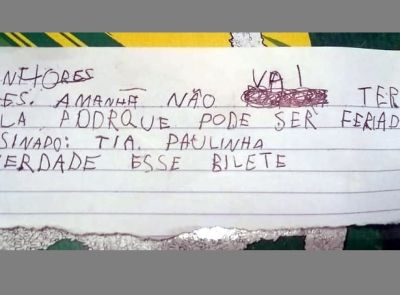 NHORES VAI
ES. AMANHÃ NÃO TER
LA PODRQUE PODE SER FERIAD
SINADO: TIA. PAULINHA
VERDADE ESSE BILETE